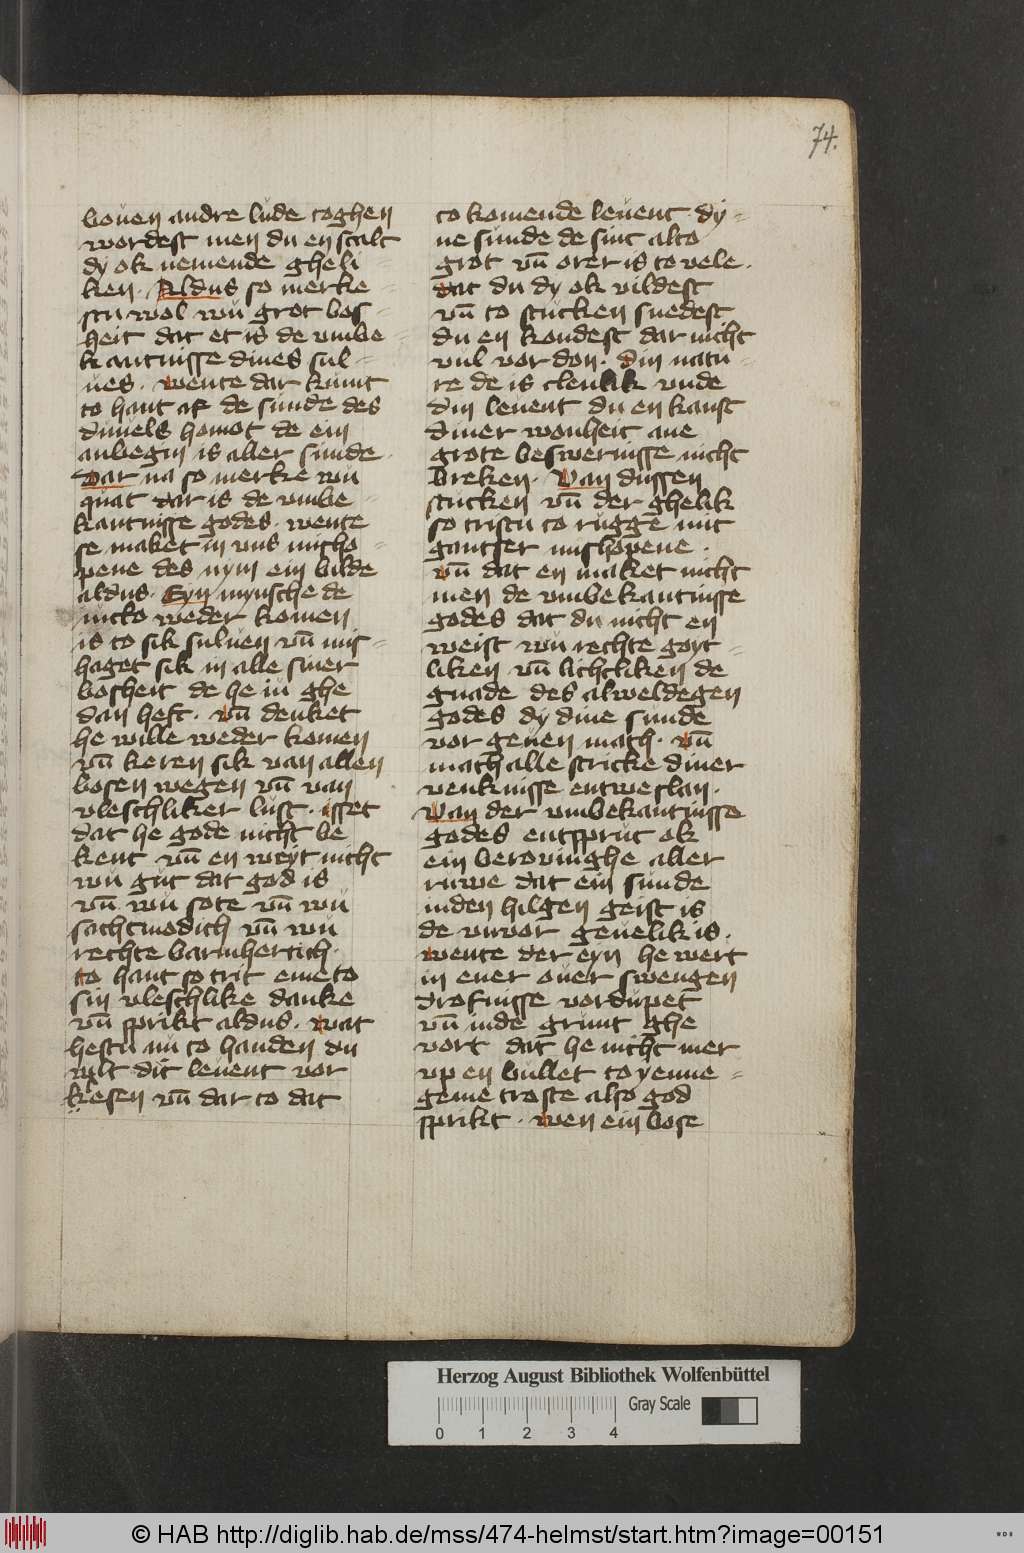 74.
bouen andre lude toghen
wordest men du en scalt
dy ok nemende gheli-
ken. Aldus so merke-
stu wol wu grot bos-
heit dat et is de vmbe-
kantnisse dines sul-
ues. wente dar kumt
to hant af de sunde des
duuels homot de ein
anbegin is aller sunde.
Dar na so merke wu
quat dar is de vmbe-
kantnisse godes. wente
se maket in vns misho-
pene des nym ein bilde
aldus. Eyn mynsche de
nicko weder komen
is to sik suluen vn̄ mis-
haget sik in alle siner
bosheit de he in ghe
dan heft. vn̄ denket
he wille weder komen
vn̄ keren sik van allen
bosen wegen vn̄ van
vleschliker lust. isset
dat he gode nicht be
kent vn̄ en weyt nicht
wu gut dat god is
vn̄ wu sote vn̄ wu
sachtmodich vn̄ wu
rechte barmhertich.
to hant so trit eme to
sin vleschlike danke
vn̄ sprikt aldus. wat
hestu nu to handen du
wlt dit leuent vor
kesen vn̄ dar to dat
to komende leuent dy-
ne sunde de sint alto
grot vn̄ orer is to vele.
dat du dy ok vildest
vn̄ to stucken snedest
du en kondest dar nicht
vul vor don. din natu-
re de is clenlik vnde
din leuent du en kanst
diner wonheit ane
grote beswernisse nicht
breken. Van dussen
stucken vn̄ der ghelik
so tristu to rugge mit
gantser mishopene.
vn̄ dat en maket nicht
men de vmbekantnisse
godes dat du nicht en
weist wu rechte goyt-
liken vn̄ lichtliken de
gnade des alweldegen
godes dy dine sunde
vor geuen mach. vn̄
mach alle stricke diner
venknisse entweslan.
Van der vmbekantnisse
godes entsprut ok
ein berouinghe aller
ruwe dat ein sunde
inden hilgen geist is
de vnvor geuelik is.
wente der eyn he wert
in ener ouer swengen
drofnisse vordupet
vn̄ inde grunt ghe
vort dat he nicht mer
vp en bullet to yenne-
geme troste also god
sprikt. wen ein bose
Herzog August Bibliothek Wolfenbüttel
Gray Scale
0 1 2 3 4
© HAB http://diglib.hab.de/mss/474-helmst/start.htm?image=00151